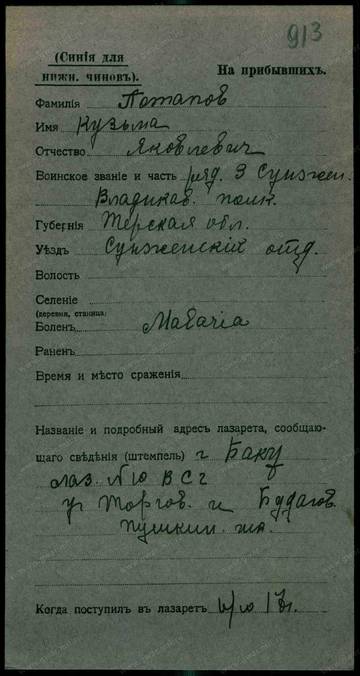 913
(Синія для
нижн. чиновъ).
На прибывшихъ.
Фамилія Потапов
Имя Кузьма
Отчество Яковлевич
Воинское званіе и часть ряд. 3 Сунжен.
Владикав. полк.
Губернія Терская обл.
Уѣздъ Сунженскій отд.
Волость
Селеніе
(деревня, станица)
Боленъ Малагія
Раненъ
Время и мѣсто сраженія
Названіе и подробный адресъ лазарета, сообщаю-
щаго свѣдѣнія (штемпель) г Баку
лаз. №10 ВСГ
уг Торгов. и Будагов.
Пушкин.
Когда поступилъ въ лазаретъ 17г.